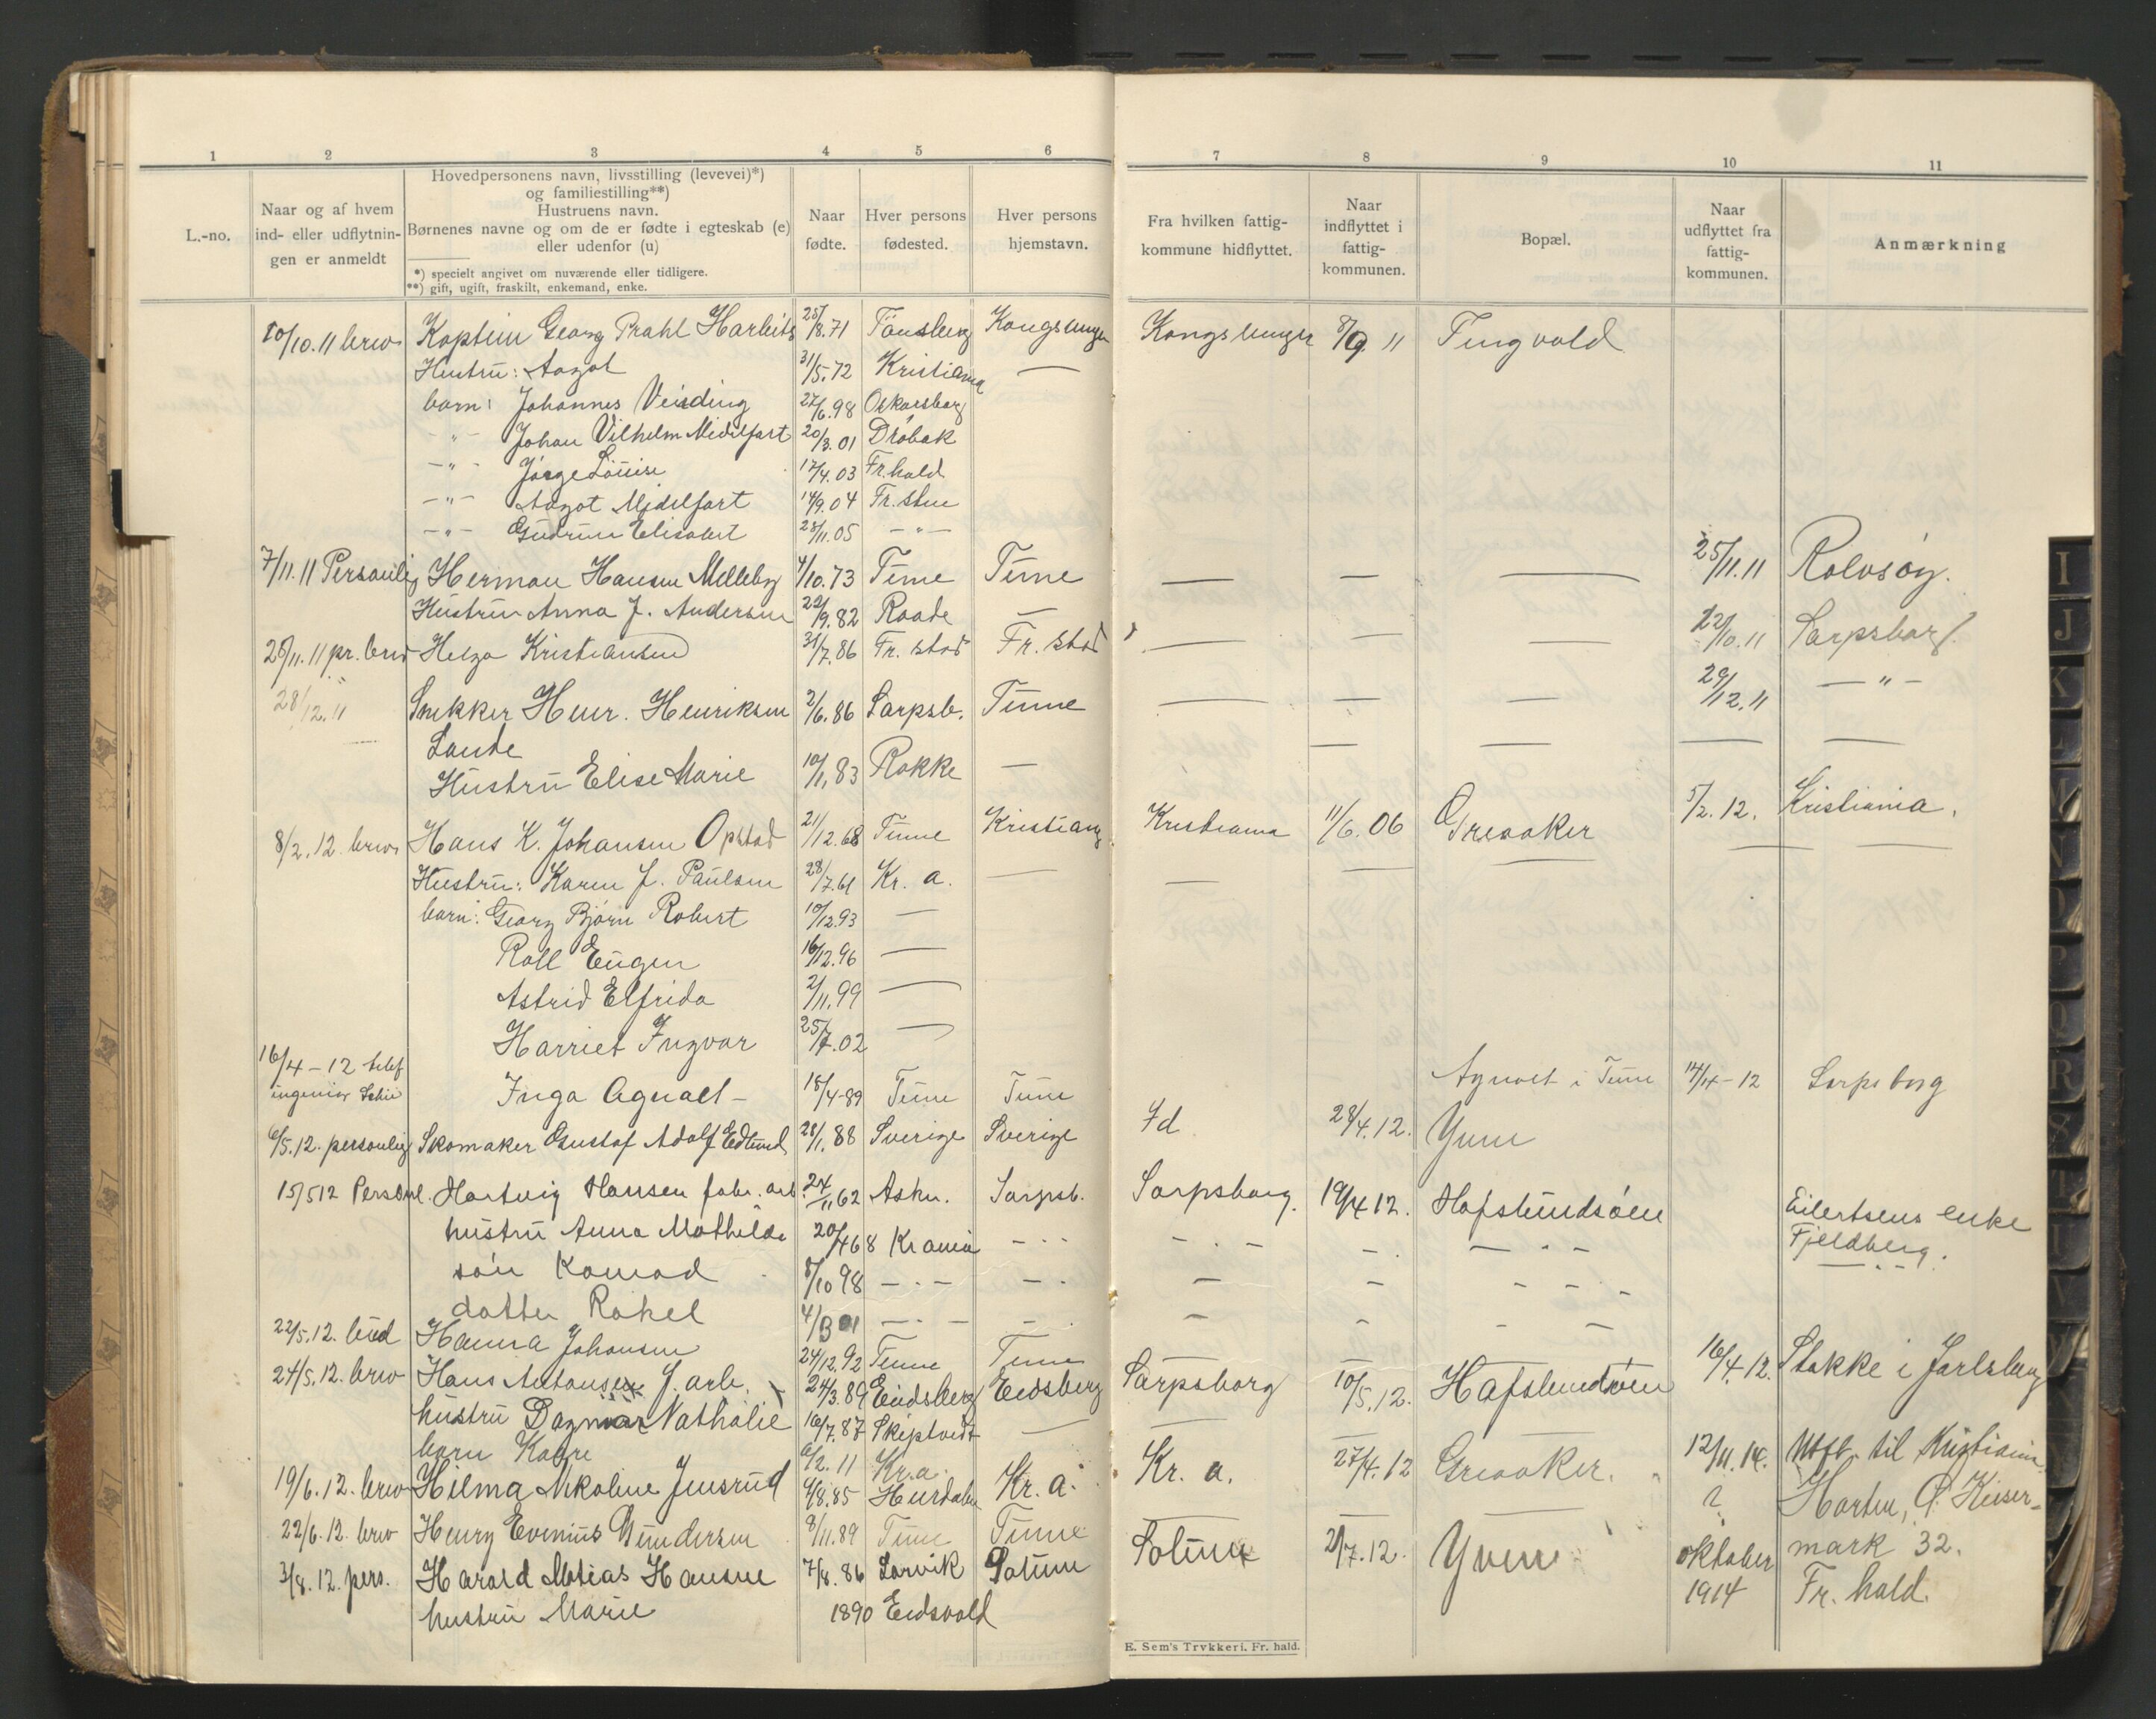 1 2 3 4 5 6 7 8 9 10 11
L.-no.
Naar og af hvem
ind- eller udflytnin-
gen er anmeldt
Hovedpersonens navn, livsstilling (levevei)*)
og familiestilling**)
Hustruens navn.
Børnenes navne og om de er fødte i egteskab (e)
eller udenfor (u)
*) specielt angivet om nuværende eller tidligere.
**) gift, ugift, fraskilt, enkemand, enke.
Naar
fødte.
Hver persons
fødested.
Hver persons
hjemstavn.
Fra hvilken fattig-
kommune hidflyttet.
Naar
indflyttet i
fattig-
kommunen.
Bopæl.
Naar
udflyttet fra
fattig-
kommunen.
Anmærkning
10/10.11 brev Kaptein Georg Prahl Harbitz 25/8.71 Tønsberg Kongsvinger Kongsvinger 8/9 11 Tingvold
Hustru: Aagot 31/5.72 Kristiania —
barn: Johannes 27/6.98 Oskarsborg
-"- Johan Vilhelm Midelfart 20/3.01 Drøbak
-"- Louise 17/4.03 Fr.hald
-"- Aagot Midelfart 14/9.04 Fr.sten
-"- Gudrun Elisabet 28/11.05 -"-
7/11.11 Personlig Herman Hansen Melleby 4/10.73 Tune Tune — — — 25/11.11 Rolvsøy.
Hustru Anna J. Andersen 22/9.82 Raade —
25/11.11 pr. brev Helga Kristiansen 31/7.86 Fr. stad Fr. stad — — — 22/10.11 Sarpsborg.
28/12.11 Snekker Henr. Henriksen 2/6.86 Sarpsb. Tune — — — 29/12.11 — " —
Lande — — — —
Hustru Elise Marie 10/1.83 Rokke —
8/2.12 brev Hans K. Johansen Opstad 21/12.68 Tune Kristiania Kristiania 11/6.06 Greaaker 5/2.12. Kristiania.
Hustru: Karen J. Paulsen 28/7.61 Kr. a. — — — — — —
barn: Georg Bjørn Robert 10/12.93 —
Rolf Eugen 16/12.96 —
Astrid Elfrida 2/11.99 —
Harriet Ingvar 25/7.02 —
16/4-12 telef
ingeniør Inga Agnalt - 18/4-89 Tune Tune Agnalt i Tune 14/4-12 Sarpsborg
6/5.12. personlig Skomaker Gustaf Adolf Edlund 28/1.88 Sverige Sverige Id 28/4.12. Yven
15/5 12 Personl. Hartvig Hansen fabr. arb. 24/11 62 Askn. Sarpsb. Sarpsborg. 19/4 12. Hafslundsøen Eilertsens enke
hustru Anna Mathilde 20/4 68 Krania - - - Fjeldberg.
søn Konrad 8/10 98 - - -
datter Rakel 4/3 01 - - -
22/5.12. bud Hanna Johansen 24/12.92 Tune Tune — — 16/4.12. Stokke i Jarlsberg
24/5.12. brev Hans Antonsen f. arb. 24/3.89 Eidsberg Eidsberg Sarpsborg 10/5.12. Hafslundsøen
hustru Dagmar Nathalie 16/7.87 Skiptvedt — — — —
barn Kaare 6/2.11 Kr.a.
19/6.12. brev Hilma Nikoline Jensrud 4/8.85 Hurdalen Kr. a. Kr. a. 27/4.12 Greaaker. 12/11.14. Utfl. til Kristiania.
22/6.12. brev Henry Evenius Gundersen 8/11.89 Tune Tune — — — ? Horten, O. Keiser-
mark 32.
3/8.12. pers. Harald Matias Hansen 7/8.86 Larvik Solum Solum 2/7.12. Yven oktober
1914 Fr. hald.
hustru Marie 1890 Eidsvold
E. Sem's Trykkeri. Fr. hald.
I
J
K
L
M
N
O
P
Q
R
S
T